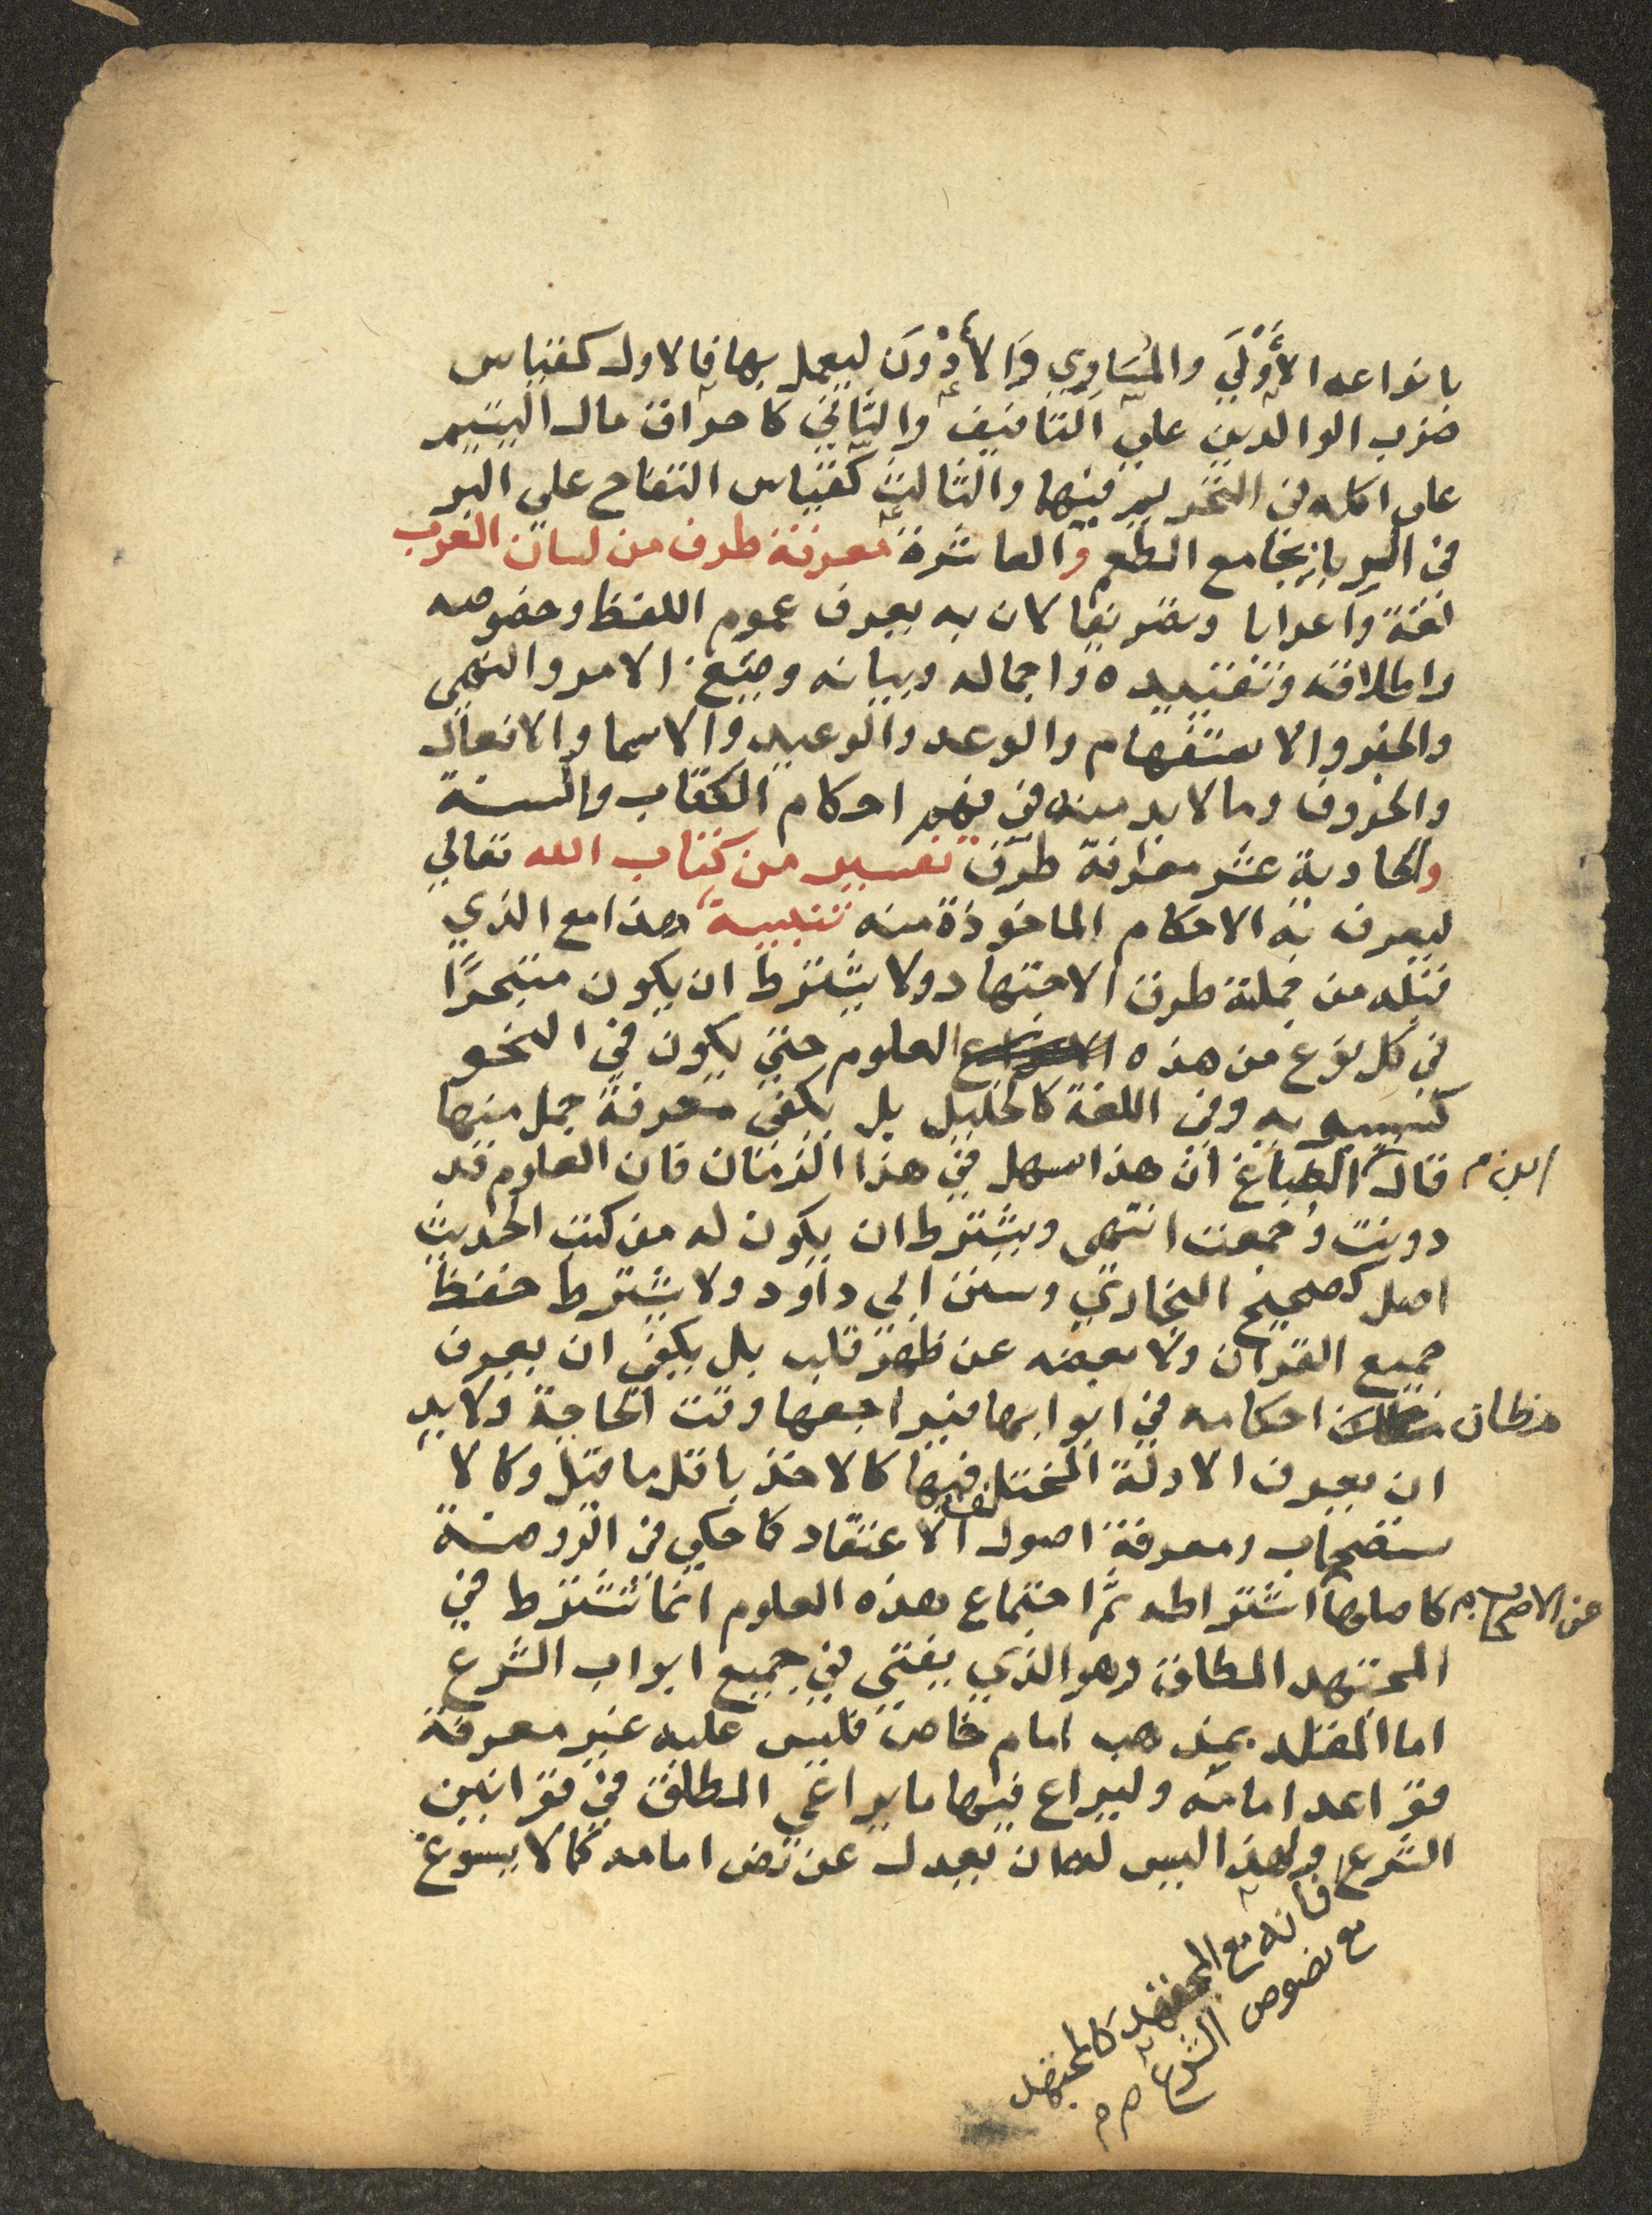 بانواعه الأَوْلَي والمُسَاوِي وَالأَدْوَن ليعمل بها فالاول كقياس
ضرب الوالدين على التافيف والثاني كاحراق مال اليتيم
على اكله في التحريم فيها والثالث كقياس التفاح على البر
في الربا بجامع الطعم والعاشرة معرفة طرف من لسان العرب
لغة واعرابا وتصريفا لان به يعرف عموم اللفظ وخصوصه
واطلاقه وتقييده واجماله وبيانه وصيغ الامر والنهي
والخبر والاستفهام والوعد والوعيد والاسما والافعال
والحروف وما لابد منه في فهم احكام الكتاب والسنة
والحادية عشر معرفة طرف تفسير من كتاب الله تعالي
ليعرف به الاحكام الماخوذة منه تنبيه هذا مع الذي
قبله من جملة طرق الاجتهاد ولا يشترط ان يكون متبحرًا
في كل نوع من هذه العلوم حتى يكون في النحو
كسيبويه وفي اللغة كالخليل بل يكفي معرفة جمل منها
قال ابن الصباغ ان هذا سهل في هذا الزمان فان العلوم قد
دونت وجمعت انتهى ويشترط ان يكون له من كتب الحديث
اصل كصحيح البخاري وسنن ابي داود ولا يشترط حفظ
جميع القران ولا بعضه عن ظهر قلب بل يكفي ان يعرف
مظان احكامه في ابوابها فيراجعها وقت الحاجة ولا بد
ان يعرف الادلة المختلف فيها كالاخذ باقل ما قيل وكالا
ستصحاب ومعرفة اصول الاعتقاد كما حكي في الروضة
عن الاصحاب كاصلها اشتراطه ثم اجتماع هذه العلوم انما تشترط في
المجتهد المطلق وهو الذي يفتي في جميع ابواب الشرع
اما المقلد بمذهب امام خاص فليس عليه غير معرفة
قواعد امامه وليراع فيها ما يراعي المطلق في قوانين
الشرع ولهذا ليس له ان يعدل عن نص امامه كما لا يسوغ
فانه مع المجتهد كالمجتهد
مع نصوص الشرع